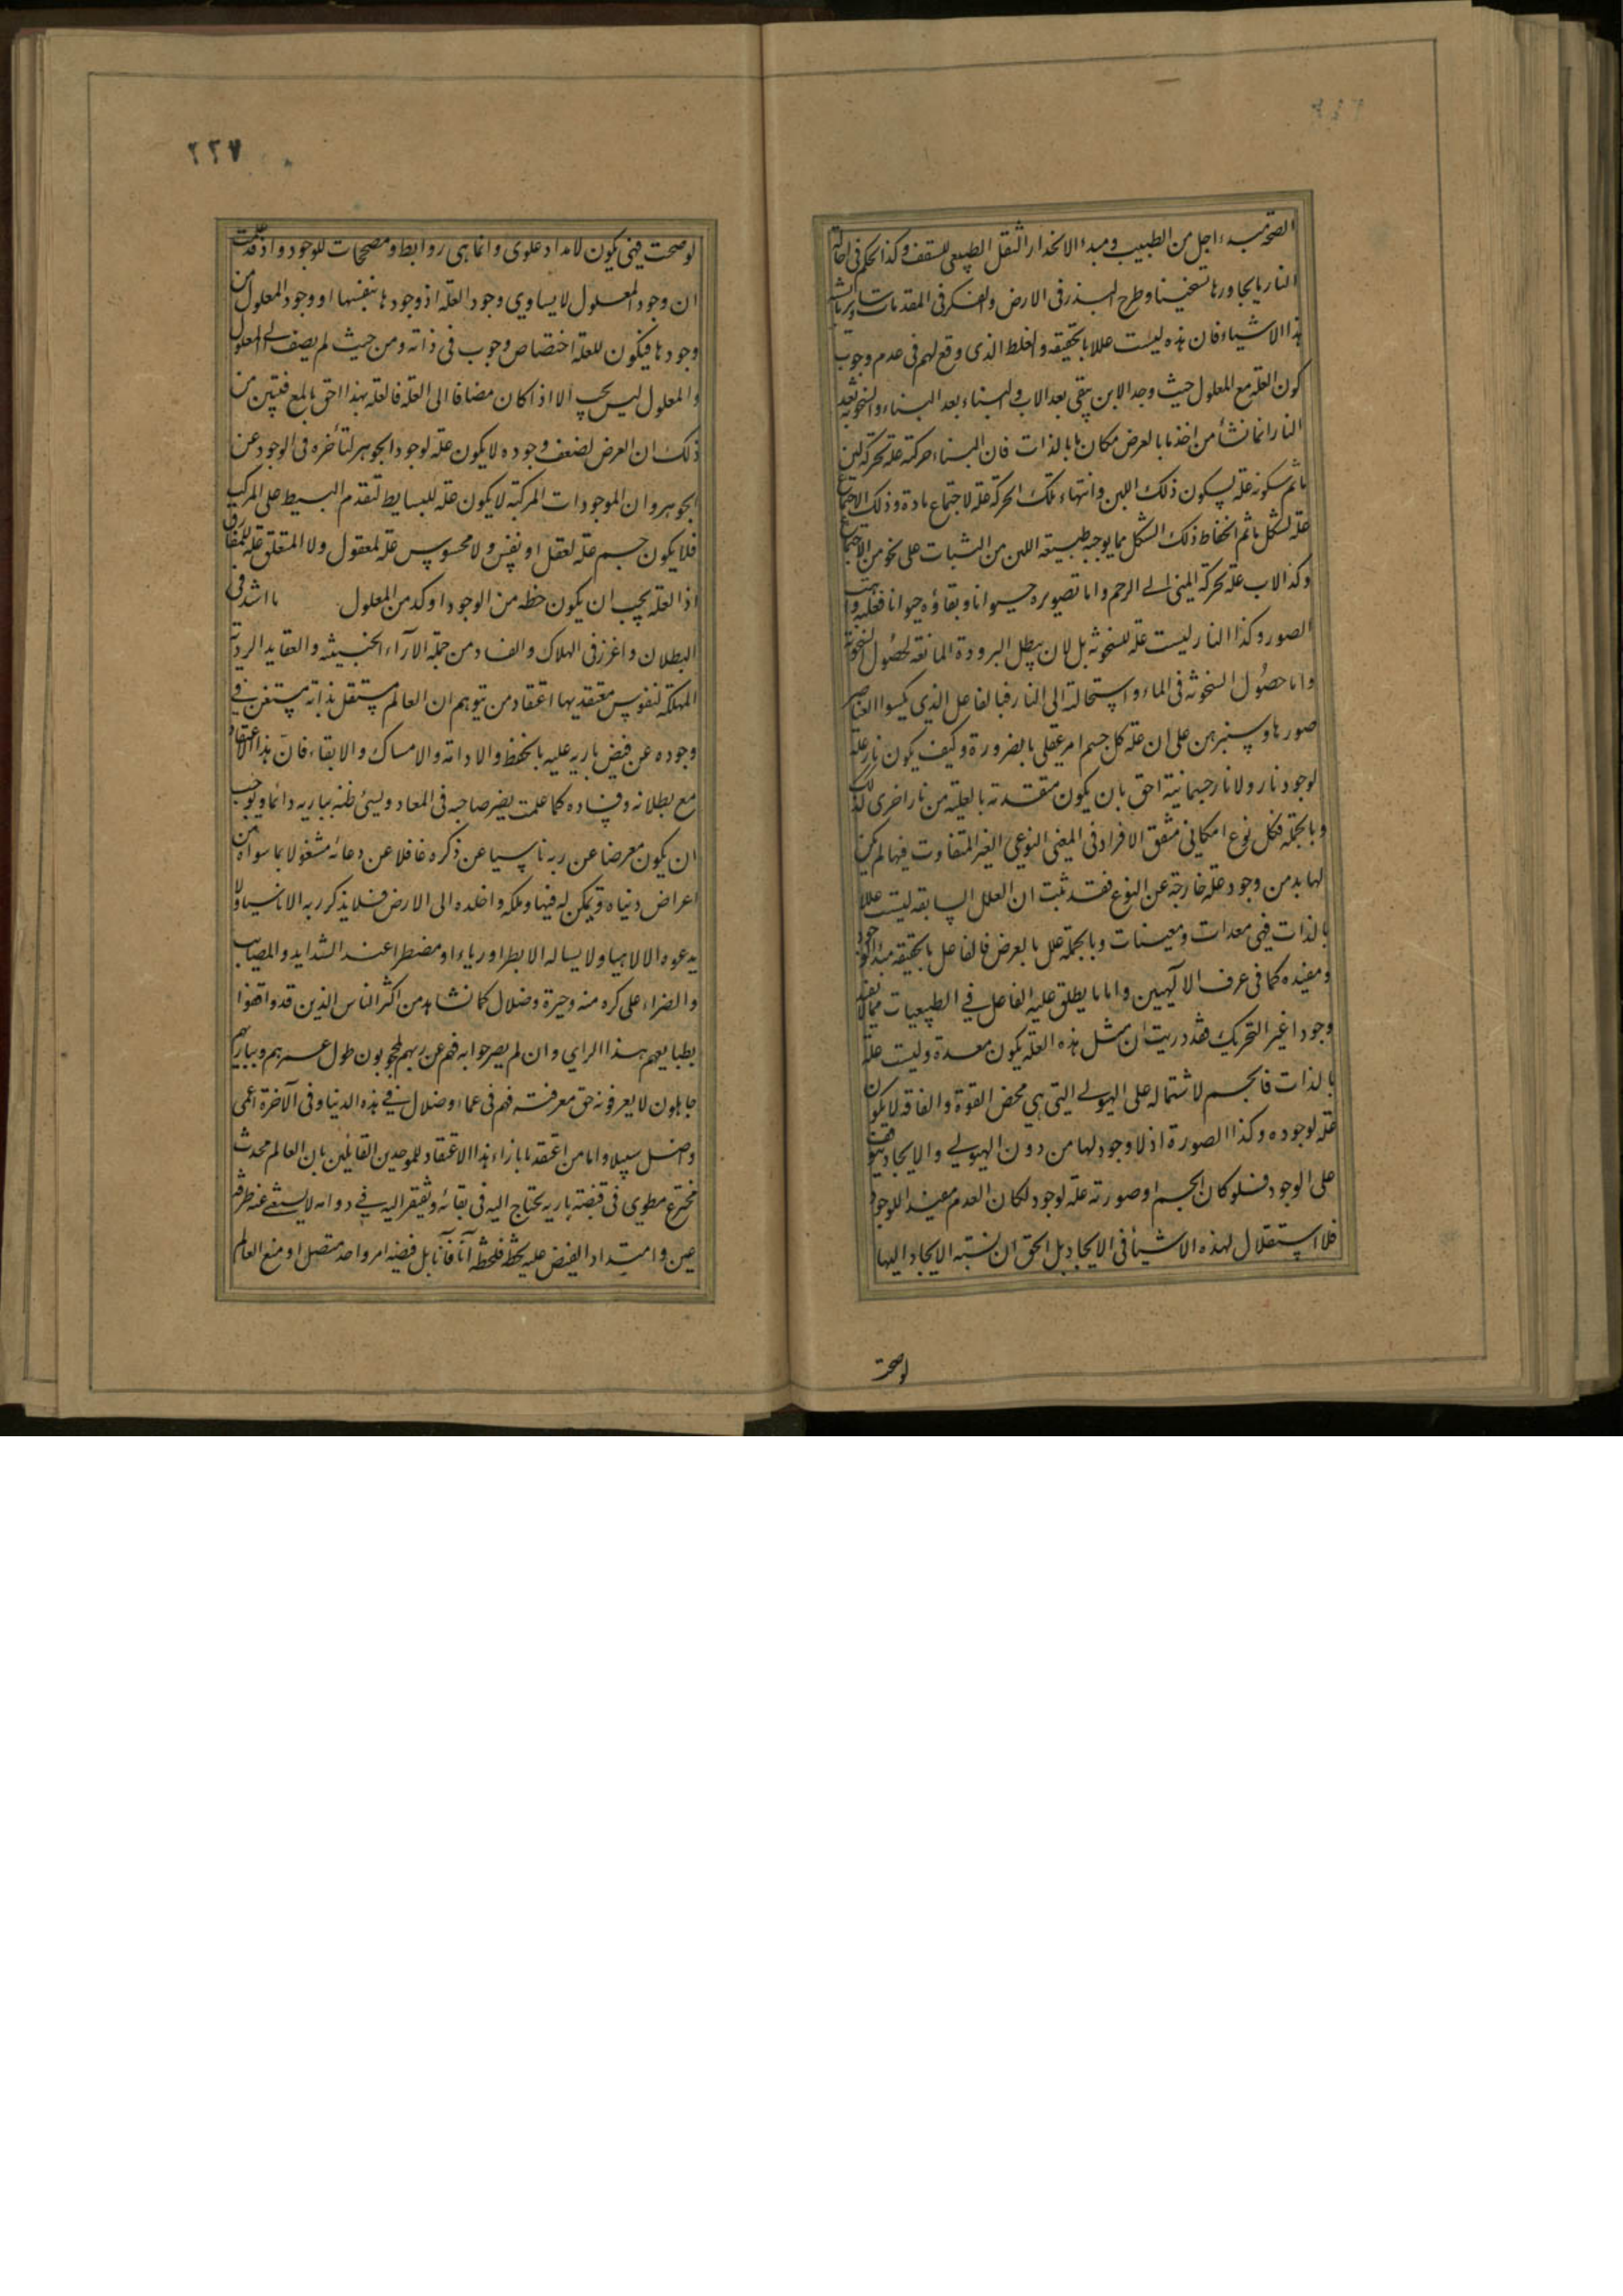 الصحة مبدء اجل من الطبيب ومبدء الانحدار الثقل الطبيعى للسقف وكذا الحكم فى احالة
النار ما يجاورها تسخينا وطرح البذر فى الارض والفكر فى المقدمات وسائر ما يشبه
هذا الاشياء فان هذه ليست عللا بالحقيقة والغلط الذى وقع لهم فى عدم وجوب
كون العلة مع المعلول حيث وجد الابن يبقى بعد الاب والبناء بعد البناء والسخونة بعد
النار انما نشأ من اخذ ما بالعرض مكان ما بالذات فان البناء حركته علة لحركة لبن
ما ثم سكونه علة لسكون ذلك اللبن وانتهاء تلك الحركة علة لاجتماع مادة وذلك الاجتماع
علة لشكل ما ثم انحفاظ ذلك الشكل مما يوجبه طبيعة اللبن من الثبات على نحو من الاجتماع
وكذا الاب علة لحركة المنى الى الرحم واما تصويره حيوانا وبقاؤه حيوانا فعلته واهب
الصور وكذا النار ليست علة للسخونة بل لان يبطل البرودة المانعة لحصول السخونة
واما حصول السخونة فى الماء واستحالته الى النار فبالفاعل الذى يكسوا العناصر
صورها وسنبرهن على ان علة كل جسم امر عقلى بالضرورة وكيف يكون نار علة
لوجود نار ولا نار جسمانية احق بان يكون متقدمة بالعلية من نار اخرى كذلك
وبالجملة فكل نوع امكانى متفق الافراد فى المعنى النوعى الغير المتفاوت فيها لم يكن
لها بد من وجود علة خارجة عن النوع فقد ثبت ان العلل السابقة ليست عللا
بالذات فهى معدات ومعينات وبالجملة علل بالعرض فالفاعل بالحقيقة مبدء الوجود
ومفيده كما فى عرف الآلهيين واما ما يطلق عليه الفاعل فى الطبيعيات مما لا يفيد
وجودا غير التحريك فقد دريت ان مثل هذه العلة يكون معدة وليست علة
بالذات فالجسم لاشتماله على الهيولى التى هى محض القوة والفاقة لا يكون
علة لوجوده وكذا الصورة اذ لا وجود لها من دون الهيولى والايجاد يتوقف
على الوجود فلو كان الجسم او صورته علة لوجود لكان العدم مفيدا للوجود
فلا استقلال لهذه الاشياء فى الايجاد بل الحق ان نسبة الايجاد اليها
لوصحت
٢٢٧
لو صحت فهى يكون لامداد علوى وانما هى روابط ومصححات للوجود واذ قد علمت
ان وجود المعلول لا يساوى وجود العلة اذ وجودها بنفسها او وجود المعلول من
وجودها فيكون للعلة اختصاص وجوب فى ذاته ومن حيث لم يضف الى المعلول
والمعلول ليس يجب الا اذا كان مضافا الى العلة فالعلة بهذا احق بالمع فتبين من
ذلك ان العرض لضعف وجوده لا يكون علة لوجود الجوهر لتأخره فى الوجود عن
الجوهر وان الموجودات المركبة لا يكون علة للبسايط لتقدم البسيط على المركب
فلا يكون جسم علة لعقل او نفس ولا محسوس علة لمعقول ولا المتعلق علة للمفارق
اذ العلة يجب ان يكون حظه من الوجود اوكد من المعلول ما اشد فى
البطلان واغرز فى الهلاك والفساد من جملة الآراء الخبيثة والعقايد الردية
المهلكة لنفوس معتقديها اعتقاد من يتوهم ان العالم مستقل بذاته مستغن فى
وجوده عن فيض باريه عليه بالحفظ والادامة والامساك والابقاء فان هذا الاعتقاد
مع بطلانه وفساده كما علمت يضر صاحبه فى المعاد ويسئ ظنه بباريه دائما ويوجب
ان يكون معرضا عن ربه ناسيا عن ذكره غافلا عن دعائه مشغولا بما سواه من
اعراض دنياه وتمكن له فيها وملكه واخلده الى الارض فلا يذكر ربه الا ناسيا ولا
يدعوه الا لاهيا ولا يساله الا بطرا ورياء او مضطرا عند الشدايد والمصايب
والضراء على كره منه وحيرة وضلال كما نشاهد من اكثر الناس الذين قد وافقوا
بطبايعهم هذا الراى وان لم يصرحوا به فهم عن ربهم لمحجوبون طول عمرهم وبباريهم
جاهلون لا يعرفونه حق معرفته فهم فى عماء وضلال فى هذه الدنيا وفى الآخرة اعمى
واضل سبيلا واما من اعتقد ما بازاء هذا الاعتقاد للموحدين القائلين بان العالم محدث
مخترع مطوى فى قبضة باريه يحتاج اليه فى بقائه ويفتقر اليه فى دوامه لا يستغنى عنه طرفة
عين وامتداد الفيض عليه لحظة فلحظة آنا فآنا بل فيضه امر واحد متصل لو منع العالم